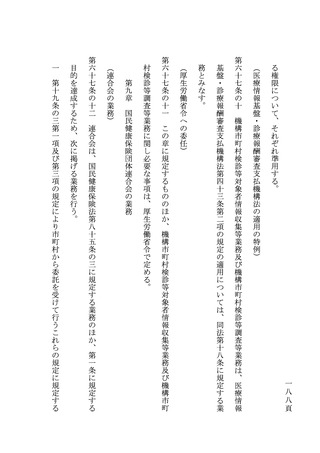 一八八頁
る権限について、それぞれ準用する。
（医療情報基盤・診療報酬審査支払機構法の適用の特例）
第六十七条の十　機構市町村検診等対象者情報収集等業務及び機構市町村検診等調査等業務は、医療情報
基盤・診療報酬審査支払機構法第四十三条第二項の規定の適用については、同法第十八条に規定する業
務とみなす。
（厚生労働省令への委任）
第六十七条の十一　この章に規定するもののほか、機構市町村検診等対象者情報収集等業務及び機構市町
村検診等調査等業務に関し必要な事項は、厚生労働省令で定める。
第九章　国民健康保険団体連合会の業務
（連合会の業務）
第六十七条の十二　連合会は、国民健康保険法第八十五条の三に規定する業務のほか、第一条に規定する
目的を達成するため、次に掲げる業務を行う。
一　第十九条の三第一項及び第三項の規定により市町村から委託を受けて行うこれらの規定に規定する